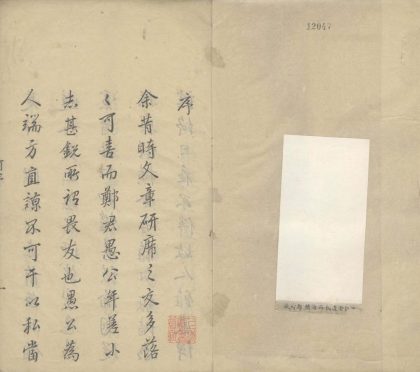 序
余昔時文章研席之交多落
〻可喜而鄭君愚公年差小
志甚銳所謂畏友也愚公為
人端方直諒不可干以私當
12047